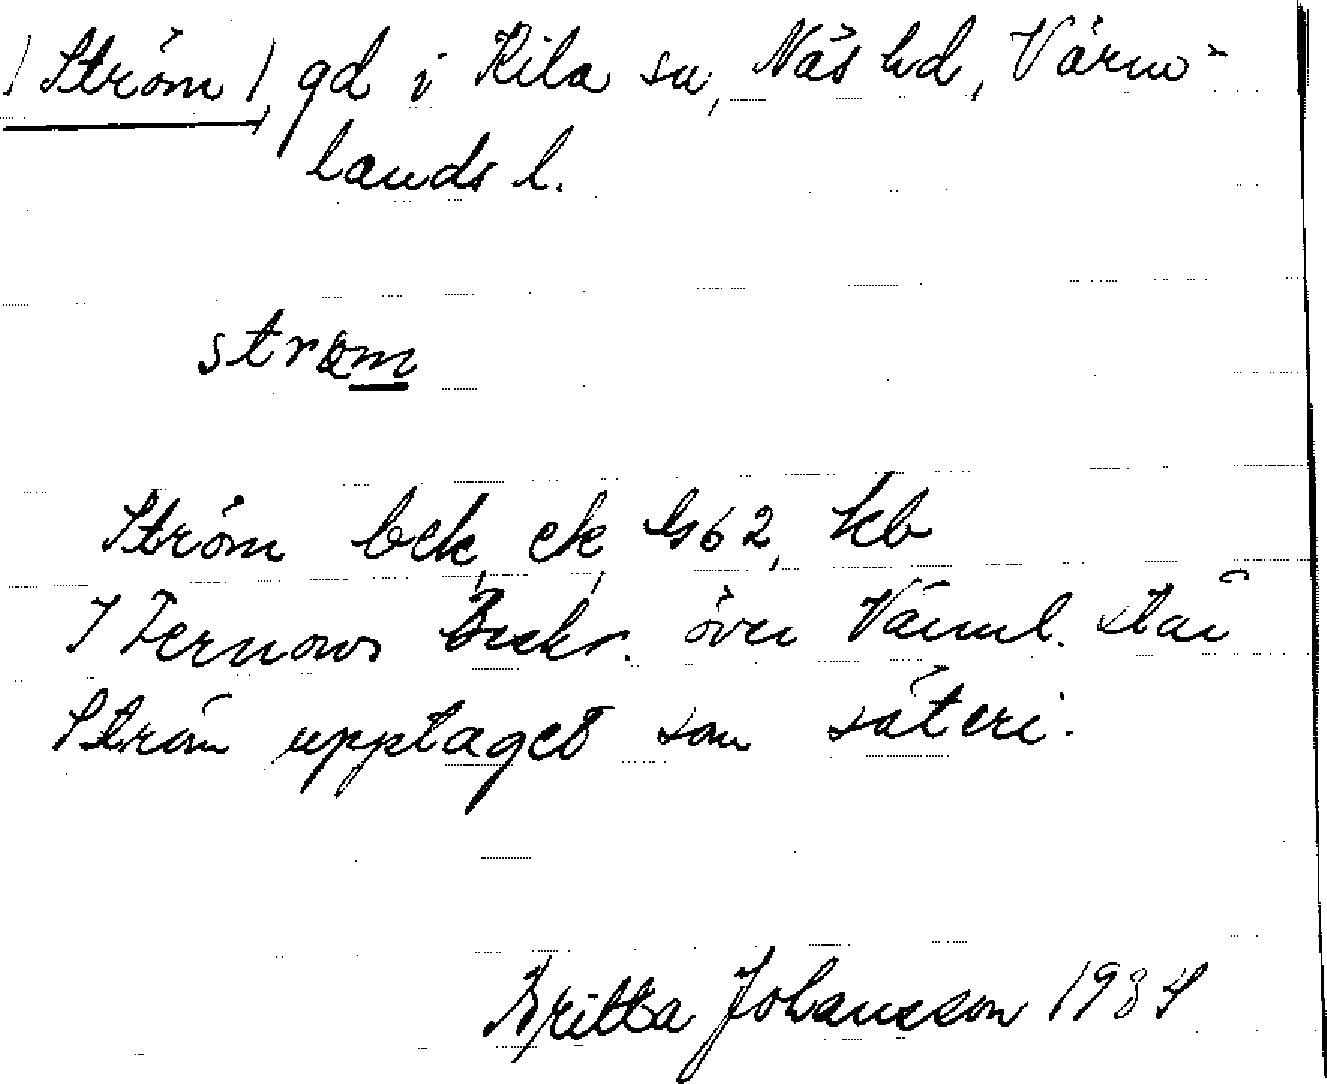 /Ström/, gd i Kila sn, Näs hd, Värm-
lands l.
strøm
Ström bek, ek, Gs 62, kb
I Fernows Beskr. över Värml. står
Ström upptaget som säteri.
Britta Johansson 1934